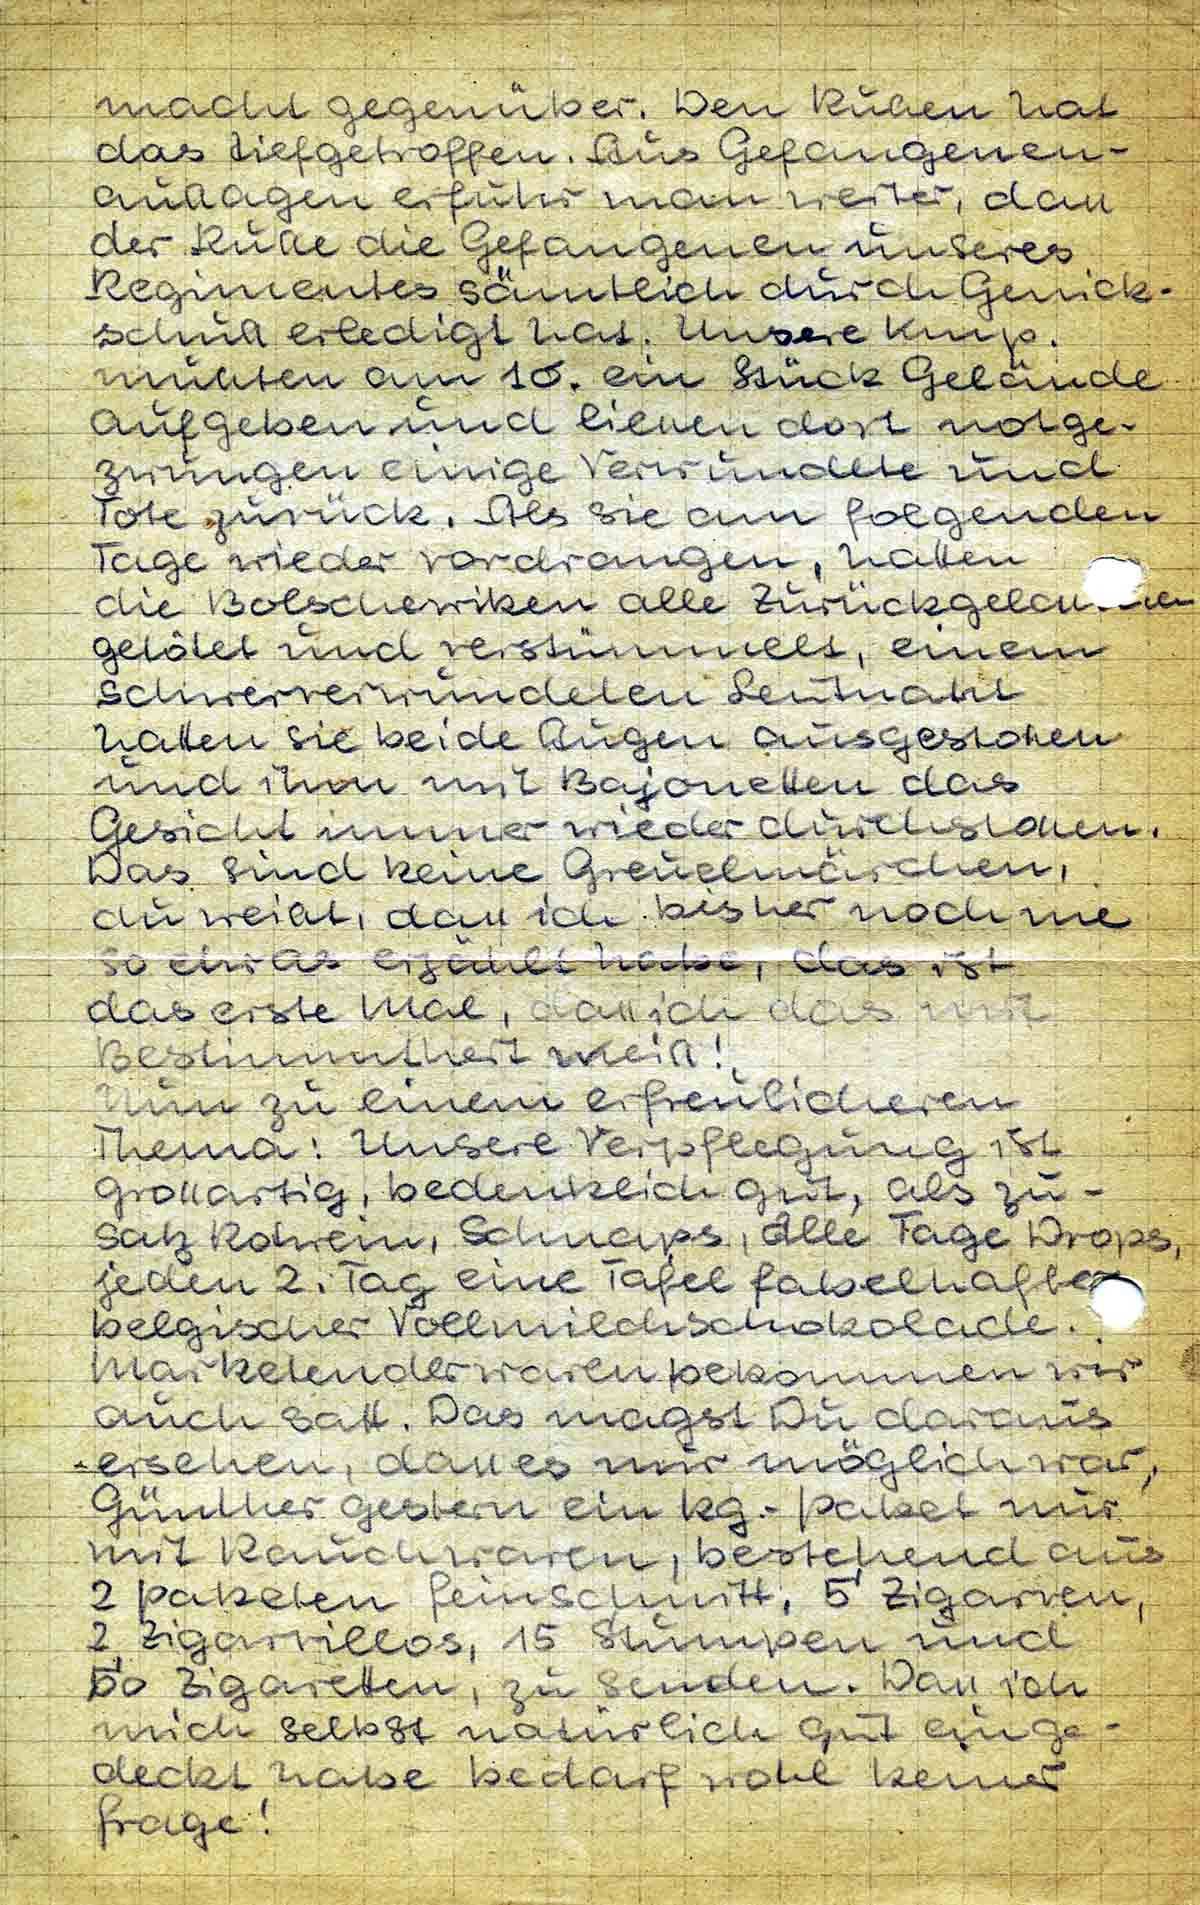 macht gegenüber. Den Russen hat
das tiefgetroffen. Aus Gefangenen-
aussagen erfuhr man weiter, dass
der Russe die Gefangenen unseres
Regimentes sämtlich durch Genick-
schuss erledigt hat. Unsere Kmp.
mussten am 10. ein Stück Gelände
aufgeben und liessen dort notge-
zwungen einige Verwundete und
Tote zurück. Als sie am folgenden
Tage wieder vordrangen, hatten
die Bolschewiken alle
getötet und verstümmelt, einem
schwerverwundeten Leutnant
hatten sie beide Augen ausgestochen
und ihm mit Bajonetten das
Gesicht immer wieder durchstossen.
Das sind keine Greuelmärchen,
du weisst, dass ich bisher noch nie
so etwas erzählt habe, das ist
das erste Mal, dass ich das mit
Bestimmtheit weiss!
Nun zu einem erfreulicheren
Thema: Unsere Verpflegung ist
grossartig, bedenklich gut, als zu-
satz Rotwein, Schnaps, Alle Tage Drops,
jeden 2. Tag eine Tafel fabelhafter
belgischer Vollmilchschokolade.
Marketenderwaren bekommen wir
auch satt. Das magst Du daraus
ersehen, dass es mir möglich war,
Günther gestern ein kg.-Paket nur
mit Rauchwaren, bestehend aus
2 Paketen Feinschnitt, 5 Zigarren,
2 Zigarrillos, 15 Stumpen und
50 Zigaretten, zu senden. Dass ich
mich selbst natürlich gut einge-
deckt habe bedarf wohl keiner
Frage!